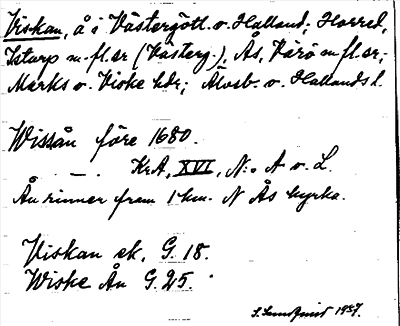 Viskan, å i Västergötl. o. Halland; Horred,
Istorp m. fl. sr (Västerg.), Ås, Värö m fl. sr;
Marks o. Viske hdr; Älvsb. o. Hallands l.
Wissån före 1680.
— — KrA, XVI, N:o A o. L.
Ån rinner fram 1 km. N Ås kyrka.
Viskan ek. G. 18.
Wiske Ån G. 25.
1937.